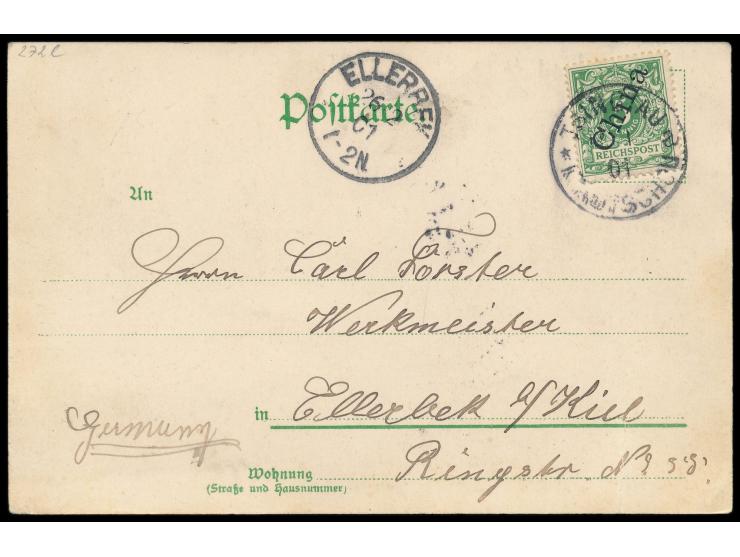 272 C
Postkarte
ELLERBEK
26 2
01
1-2N.
China
REICHSPOST
01
An
Herrn Carl Förster
Werkmeister
in Ellerbek a/Kiel
Germany
Ringstr. No
Wohnung
(Straße und Hausnummer)